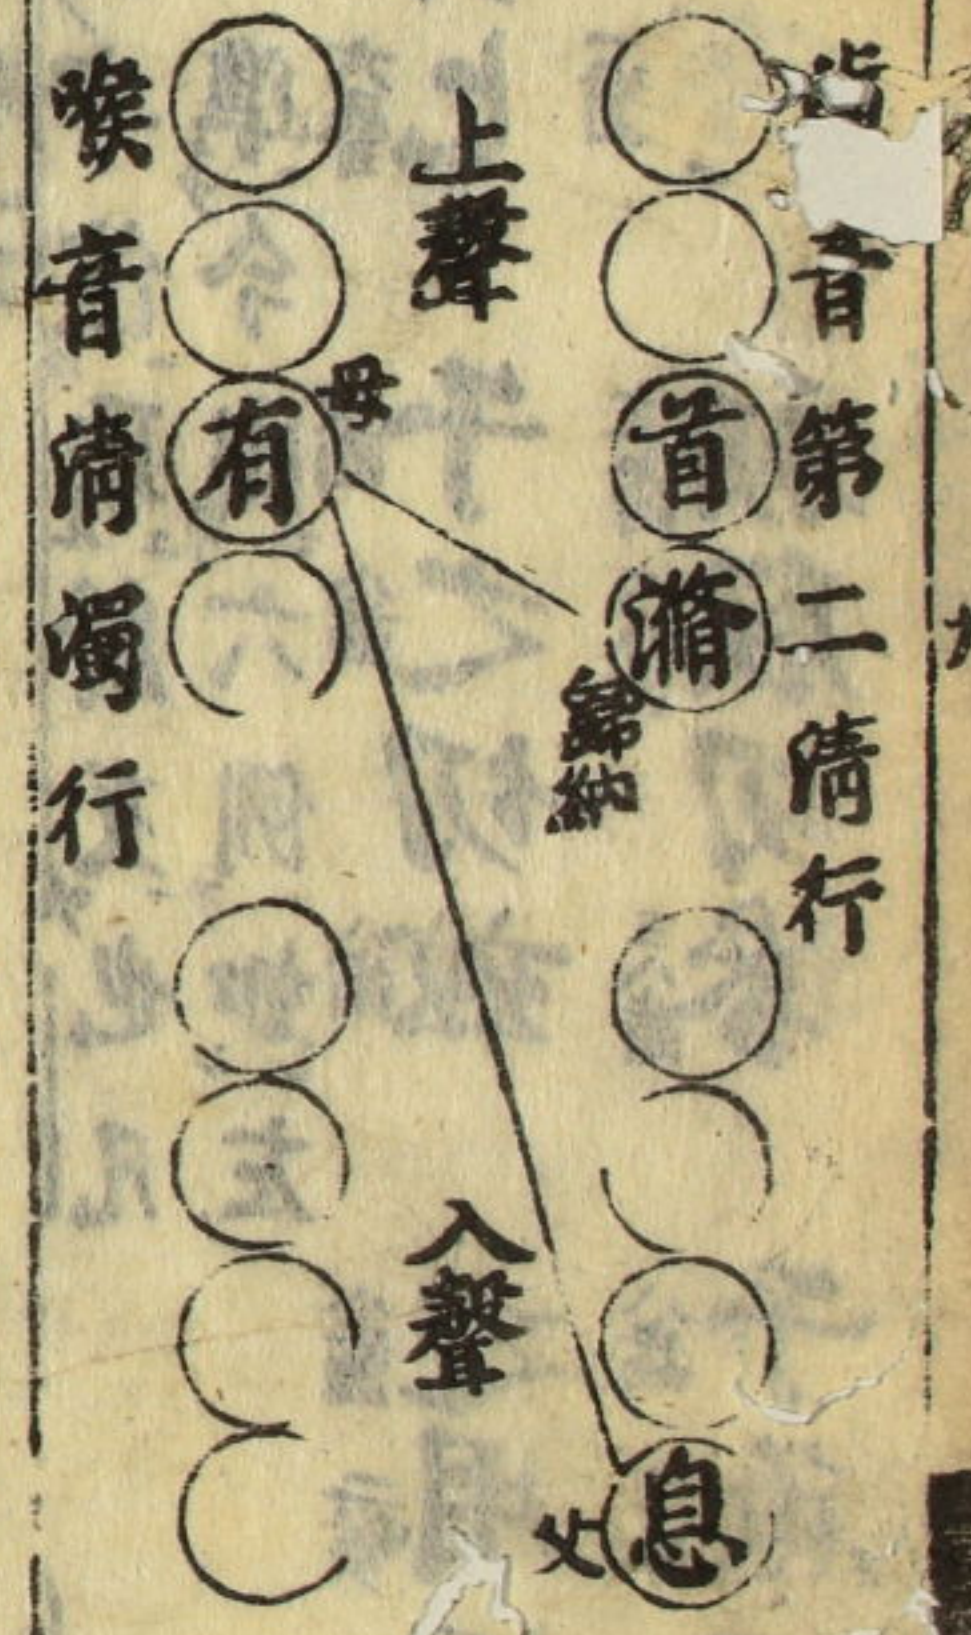 音第二清行
首
滫
息
歸納
父
上聲
入聲
母
有
喉音清濁行